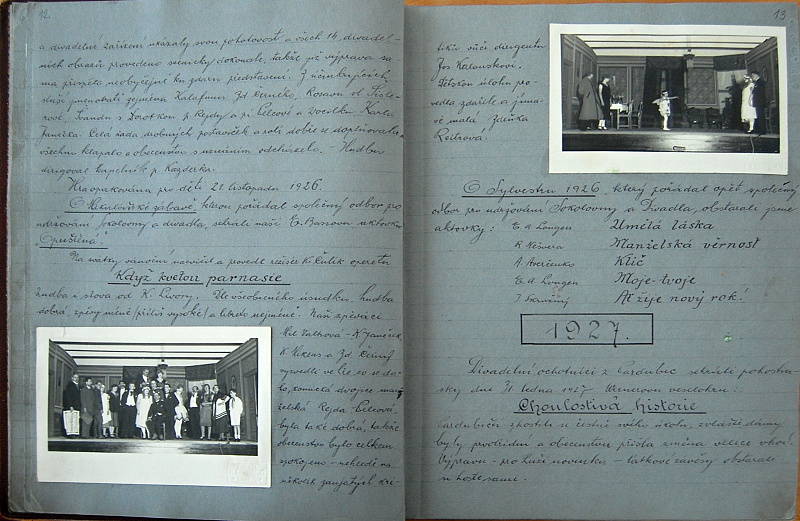 12.
a divadelní zařízení ukázaly svou pohotovost a všech 14 divadel-
ních obrazů provedeno scénicky dokonale, takže již výprava sa-
ma přispěla neobyčejně ku zdaru představení. Z účinkujících
sluší jmenovati zejména Kalafunu Zd. Černého, Rosavu sl. Šisle-
rové, Švandu s Dorotkou p. Rejdy a pí Lelcové a Vocilku Karla
Janečka. Celá řada drobných postaviček a rolí dobře se doplňovala
všechno klapalo a obecenstvo s uznáním odcházelo. – Hudbu
dirigoval kapelník p. Kazderka.
Hra opakována pro děti 21. listopadu 1926.
O Havlovské zábavě, kterou pořádal společný odbor pro
udržování Sokolovny a divadla, sehráli naši E. Bassovu aktovku
Opuštěná.
Na svátky vánoční navštívil a provedl režisér K. Čulík operetu
Když kvetou parnasie
hudba i slova od K. Livory. Dle všeobecného úsudku, hudba
dobrá, zpěvy méně /příliš vysoké/ a libreto nejméně. Naši zpěváci
Mil. Vaňková – K. Janeček
K. Mikens a Zd. Černý
vyvedli vše co se da-
lo, komická dvojice man-
želská Rejda Lelcová,
byla také dobrá, takže
obecenstvo bylo celkem
spokojeno – nehledě na
několik zaujatých kri-
13
tiků vůči dirigentu
Jos. Kalouskovi.
Dětskou úlohu pro-
vedla zdařile a jíma-
vě malá Zdeňka
Rejtrová.
O Sylvestru 1926, který pořádal opět společný
odbor pro udržování Sokolovny a Divadla, obstarali jsme
aktovky: E. A. Longen Umělá láska
R. Nešvera Manželská věrnost
A. Averčenko Klíč
E. A. Longen Moje-tvoje
J. Skružný Ať žije nový rok!
1927.
Divadelní ochotníci z Pardubic sehráli pohostin-
sky dne 31. ledna 1927 Wernerovu veselohru:
Choulostivá historie
Pardubičtí zhostili se čestně svého úkolu, zvláště dámy
byly prvotřídní a obecenstvu přišla změna velice vhod.
Výpravu – pro Luži novinku – látkové závěsy obstarali
si hosté sami.